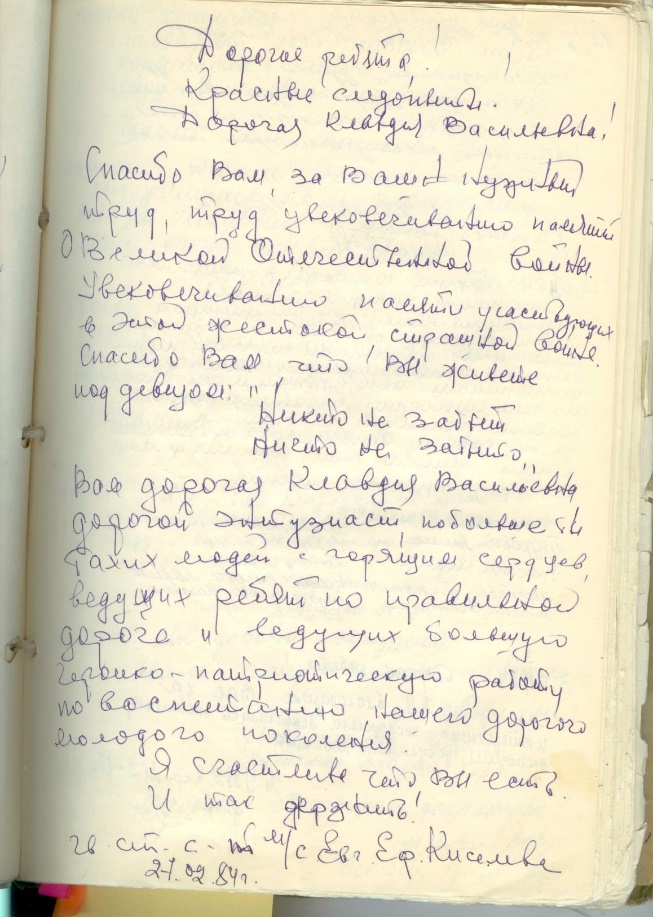 Дорогие ребята!
Красные следопыты!
Дорогая Клавдия Васильевна!
Спасибо Вам, за Ваш нужный
труд, труд увековечиванию памяти
О Великой Отечественной войны.
Увековечиванию памяти участвующих
в этой жестокой страшной войне.
Спасибо Вам что Вы живете
под девизом: "
Никто не забыт
Ничто не забыто"
Вам дорогая Клавдия Васильевна
дорогой энтузиаст побольше бы
таких людей с горящим сердцем,
ведущих ребят по правильной
дороге и ведущих большую
героико-патриотическую работу
по воспитанию нашего дорогого
молодого поколения.
Я счастлива что Вы есть.
И так держать!
гв. ст. с-т м/с Евг. Еф. Киселева
27.02.84г.